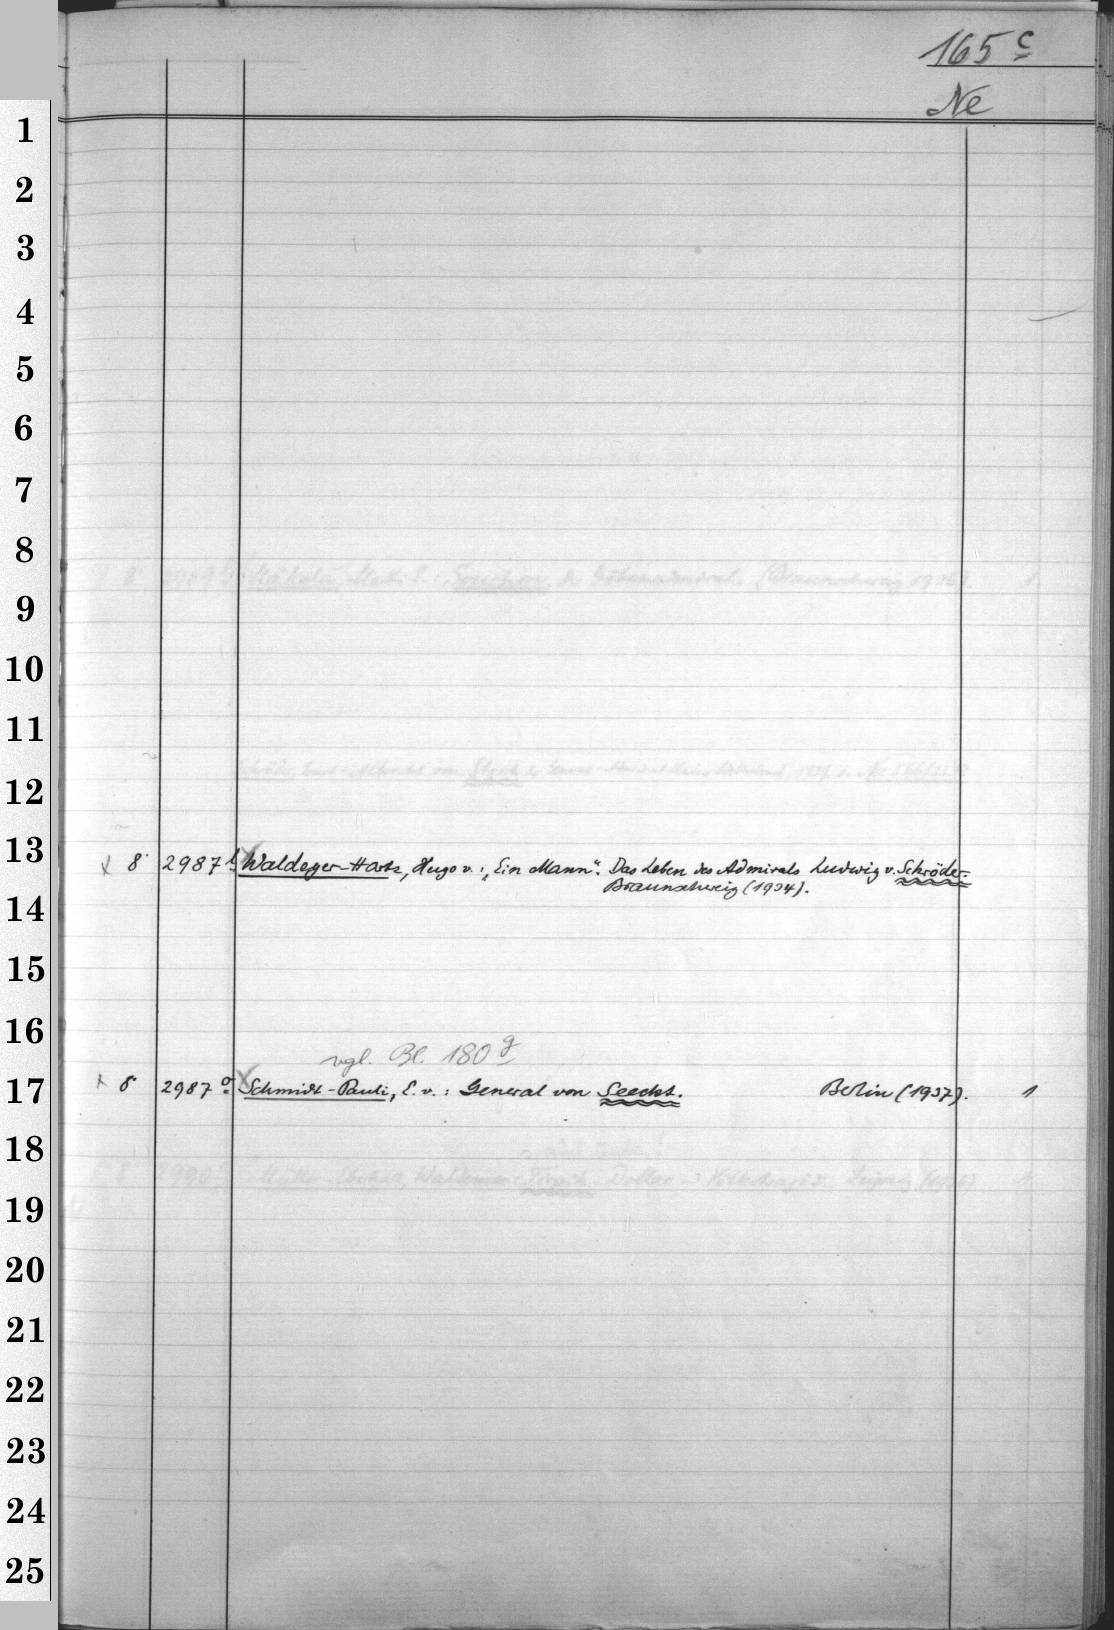 165 c
Ne
1
2
3
4
5
6
7
8
9
10
11
12
13
x 8° 2987 Waldeyer-Hartz, Hugo v.: „Ein Mann“. Das Leben des Admirals Ludwig v. Schröder.
Braunschweig (1934).
14
15
16
vgl. Bl. 180 g
17
x 8° 2987 o Schmidt-Pauli, E. v.: General von Seeckt. Berlin (1937). 1
18
19
20
21
22
23
24
25